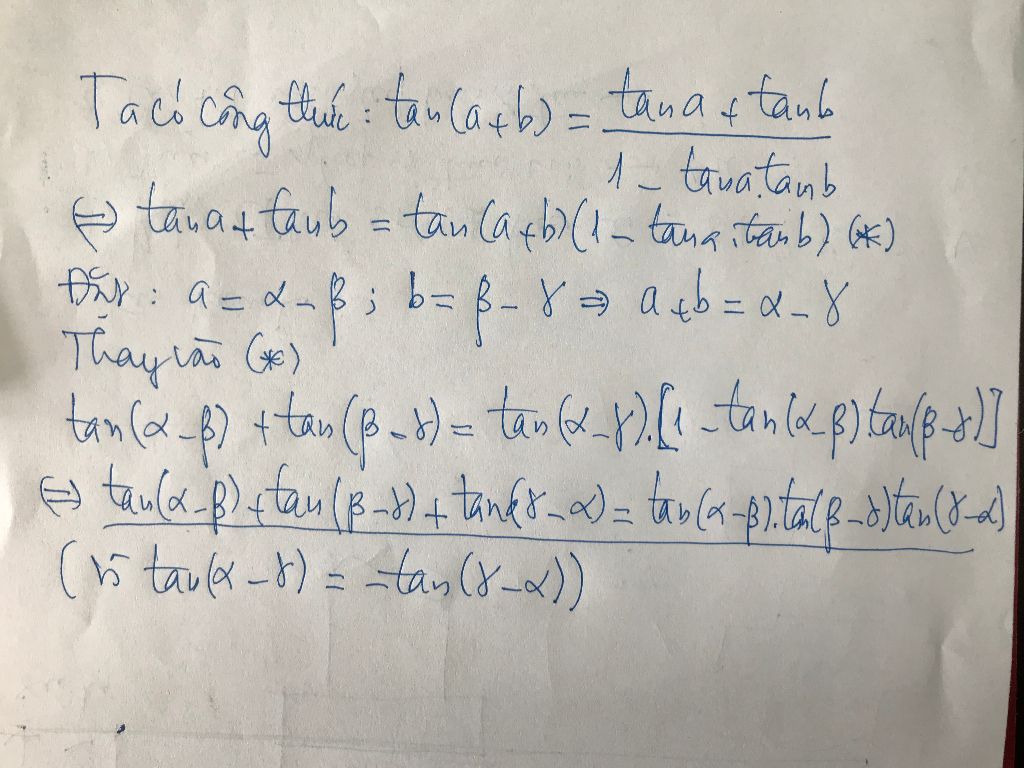 Ta có công thức : tan(a+b) = (tan a + tan b) / (1 - tan a . tan b)
⇔ tan a + tan b = tan(a+b)(1 - tan a . tan b) (*)
Đặt : a = α - β ; b = β - γ ⇒ a+b = α - γ
Thay vào (*)
tan(α-β) + tan(β-γ) = tan(α-γ).[1 - tan(α-β).tan(β-γ)]
⇔ tan(α-β) + tan(β-γ) + tan(γ-α) = tan(α-β).tan(β-γ)tan(γ-α)
(vì tan(α-γ) = -tan(γ-α))